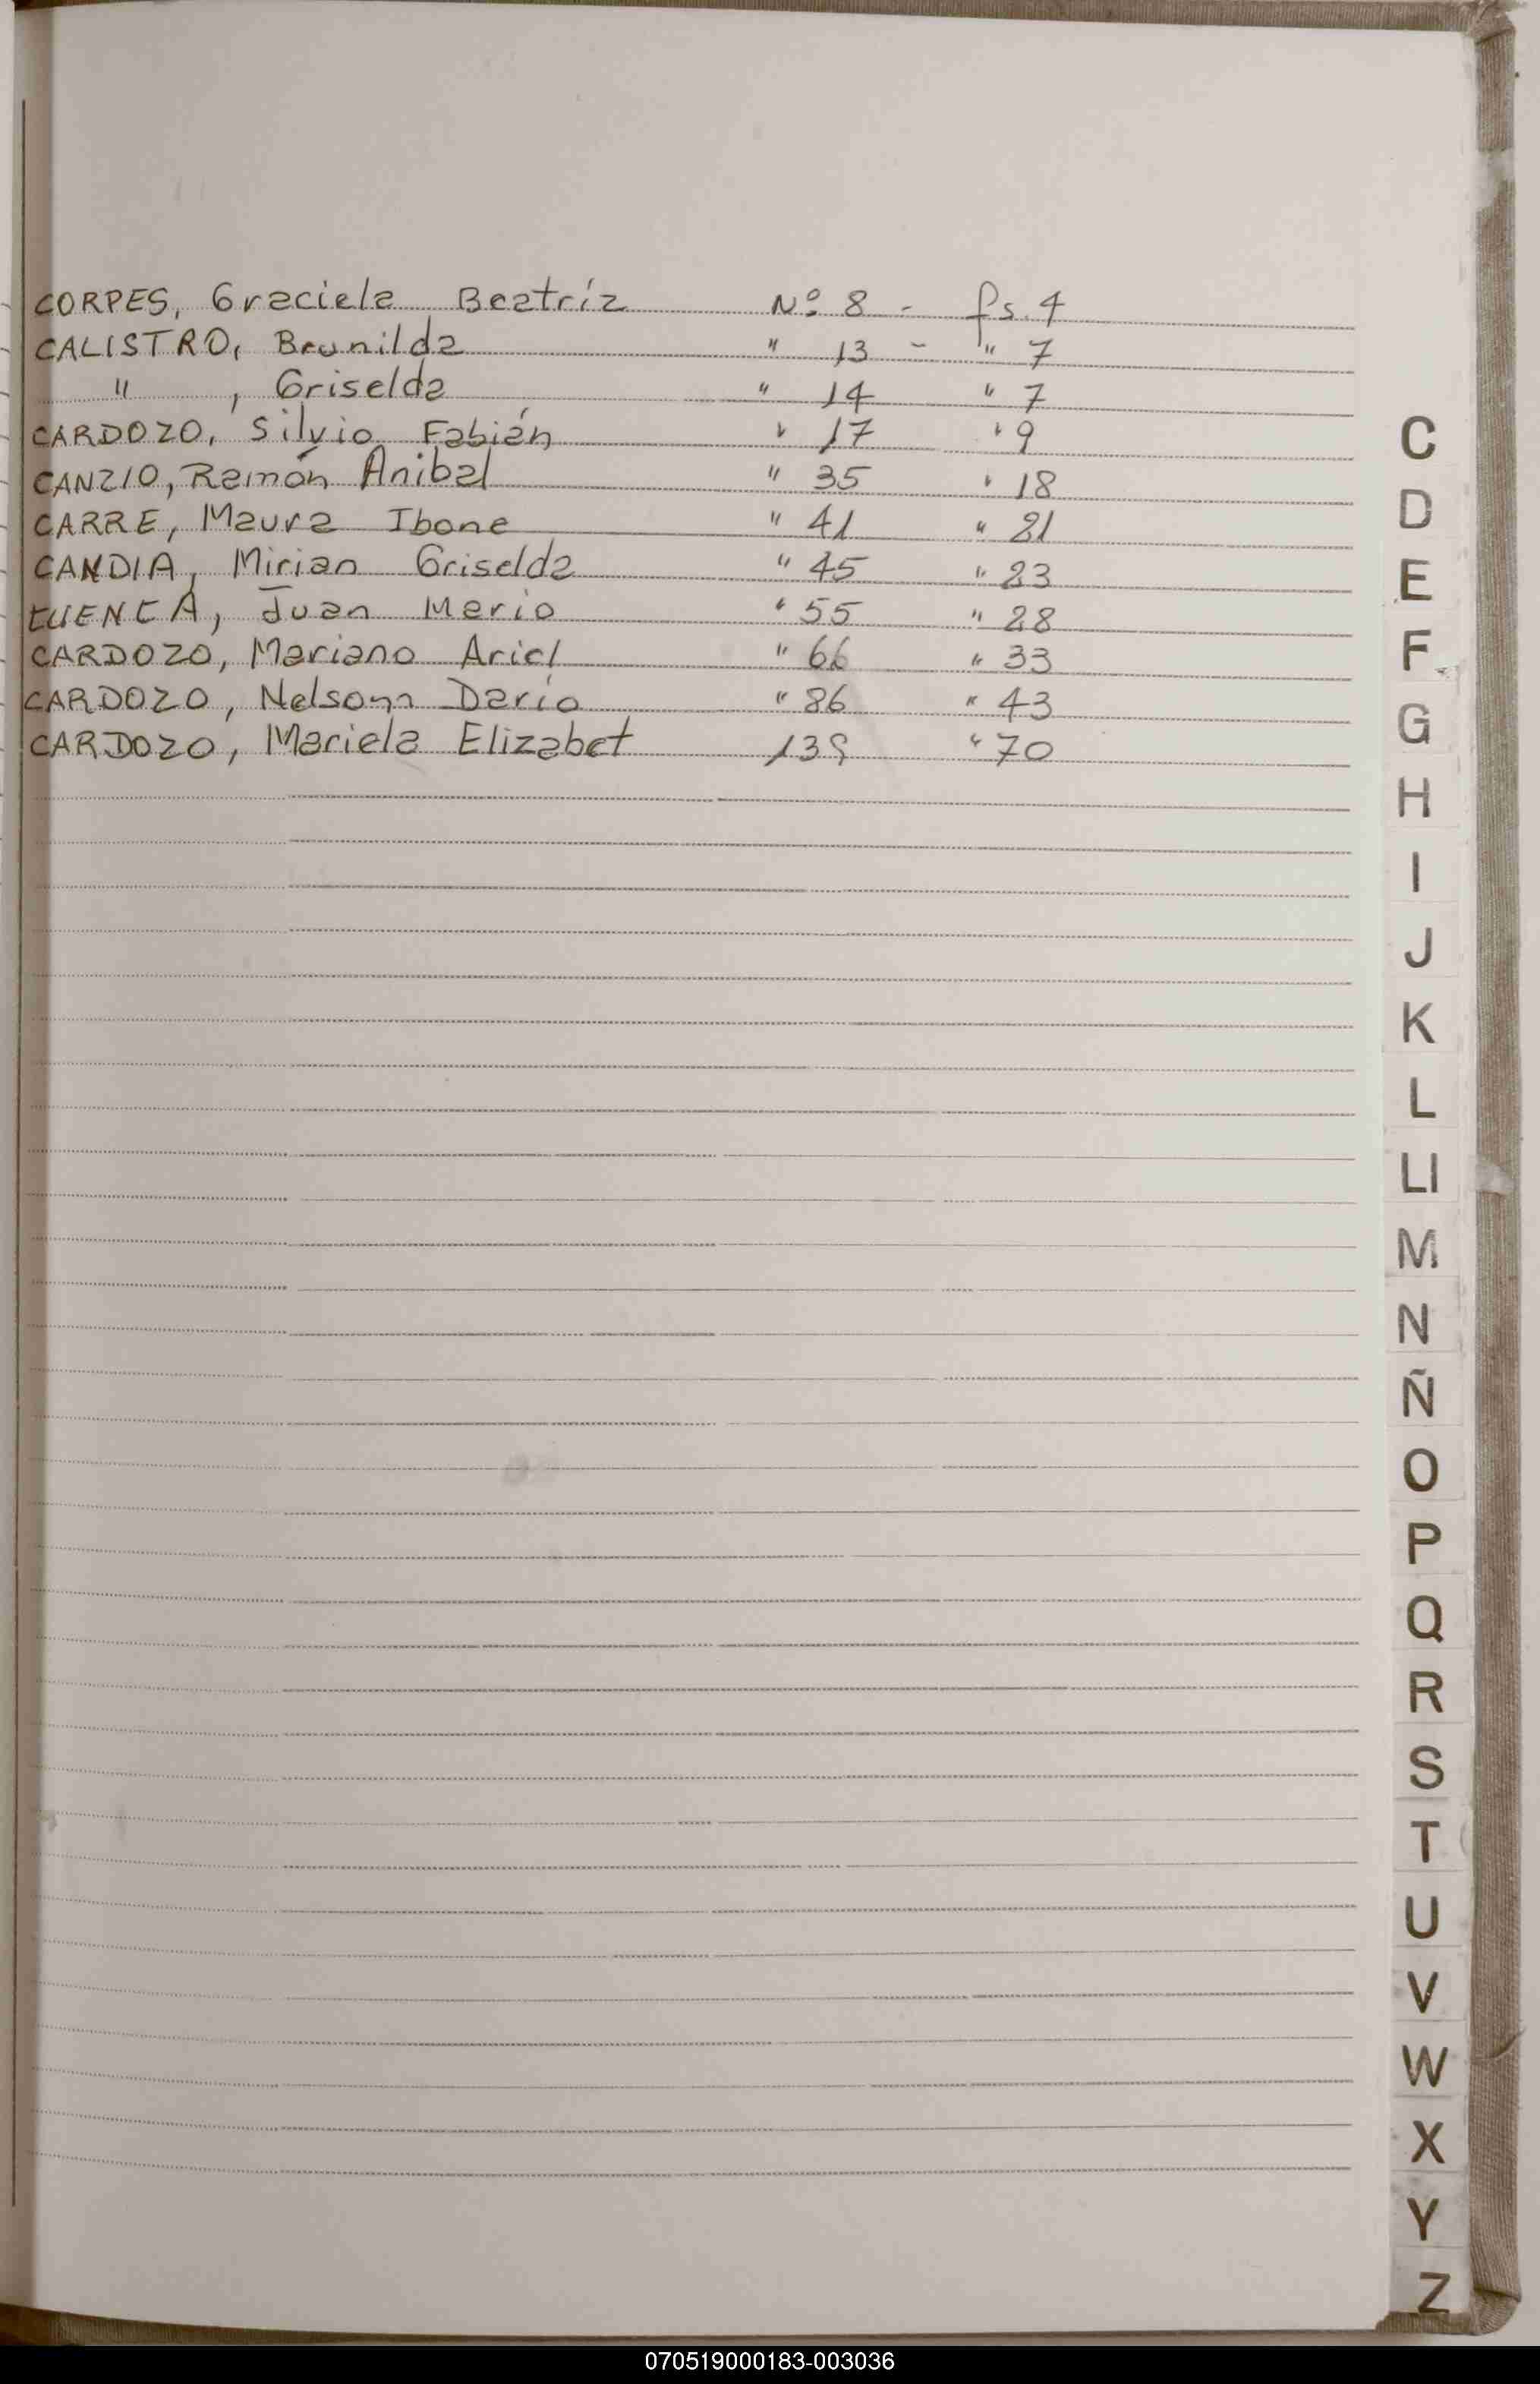 CORPES, Graciela Beatríz Nº 8 - fs. 4
CALISTRO, Brunilda " 13 - " 7
" , Griselda " 14 " 7
CARDOZO, Silvio Fabián " 17 " 9
CANZIO, Ramón Anibal " 35 " 18
CARRE, Maura Ibone " 41 " 21
CANDIA, Mirian Griselda " 45 " 23
CUENCA, Juan Mario " 55 " 28
CARDOZO, Mariano Ariel " 66 " 33
CARDOZO, Nelson Darío " 86 " 43
CARDOZO, Mariela Elizabet 139 " 70
C
D
E
F
G
H
I
J
K
L
Ll
M
N
Ñ
O
P
Q
R
S
T
U
V
W
X
Y
Z
070519000183-003036